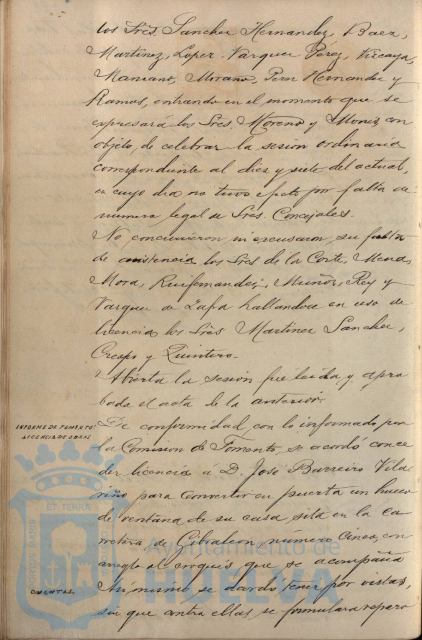 los Sres. Sanchez Hernandez, Baez,
Martinez, Lopez, Vazquez Perez, Vizcaya,
Manzano, Morano, Perez Hernandez y
Ramos, entrando en el momento que se
expresará los Sres. Moreno y Muniz con
objeto de celebrar la sesion ordinaria
correspondiente al diez y siete del actual,
en cuyo dia no tuvo efecto por falta de
numero legal de Sres. Concejales.
No concurrieron ni excusaron su falta
de asistencia los Sres de la Corte,
Mora, Ruifernandez, Muñoz, Rey y
Vazquez de Zafa hallandose en uso de
licencia los Sres Martinez Sanchez,
Crespo y Quintero.
Abierta la sesion fue leida y apro
bada el acta de la anterior.
INFORME DE FOMENTO:
LICENCIA DE OBRAS
De conformidad con lo informado por
la Comision de Fomento, se acordó conce
der licencia a D. José Barreiro Vila
niño para convertir en puerta un hueco
de ventana de su casa, sita en la ca
rretera de Gibraleon numero cinco, con
arreglo al croquis que se acompaña
CUENTAS.
Asi mismo se acordó tener por vistas,
sin que contra ellas se formulara reparo
PORTUS MARIS
ET TERRÆ
CUSTODIA
Ayuntamiento de
HUELVA